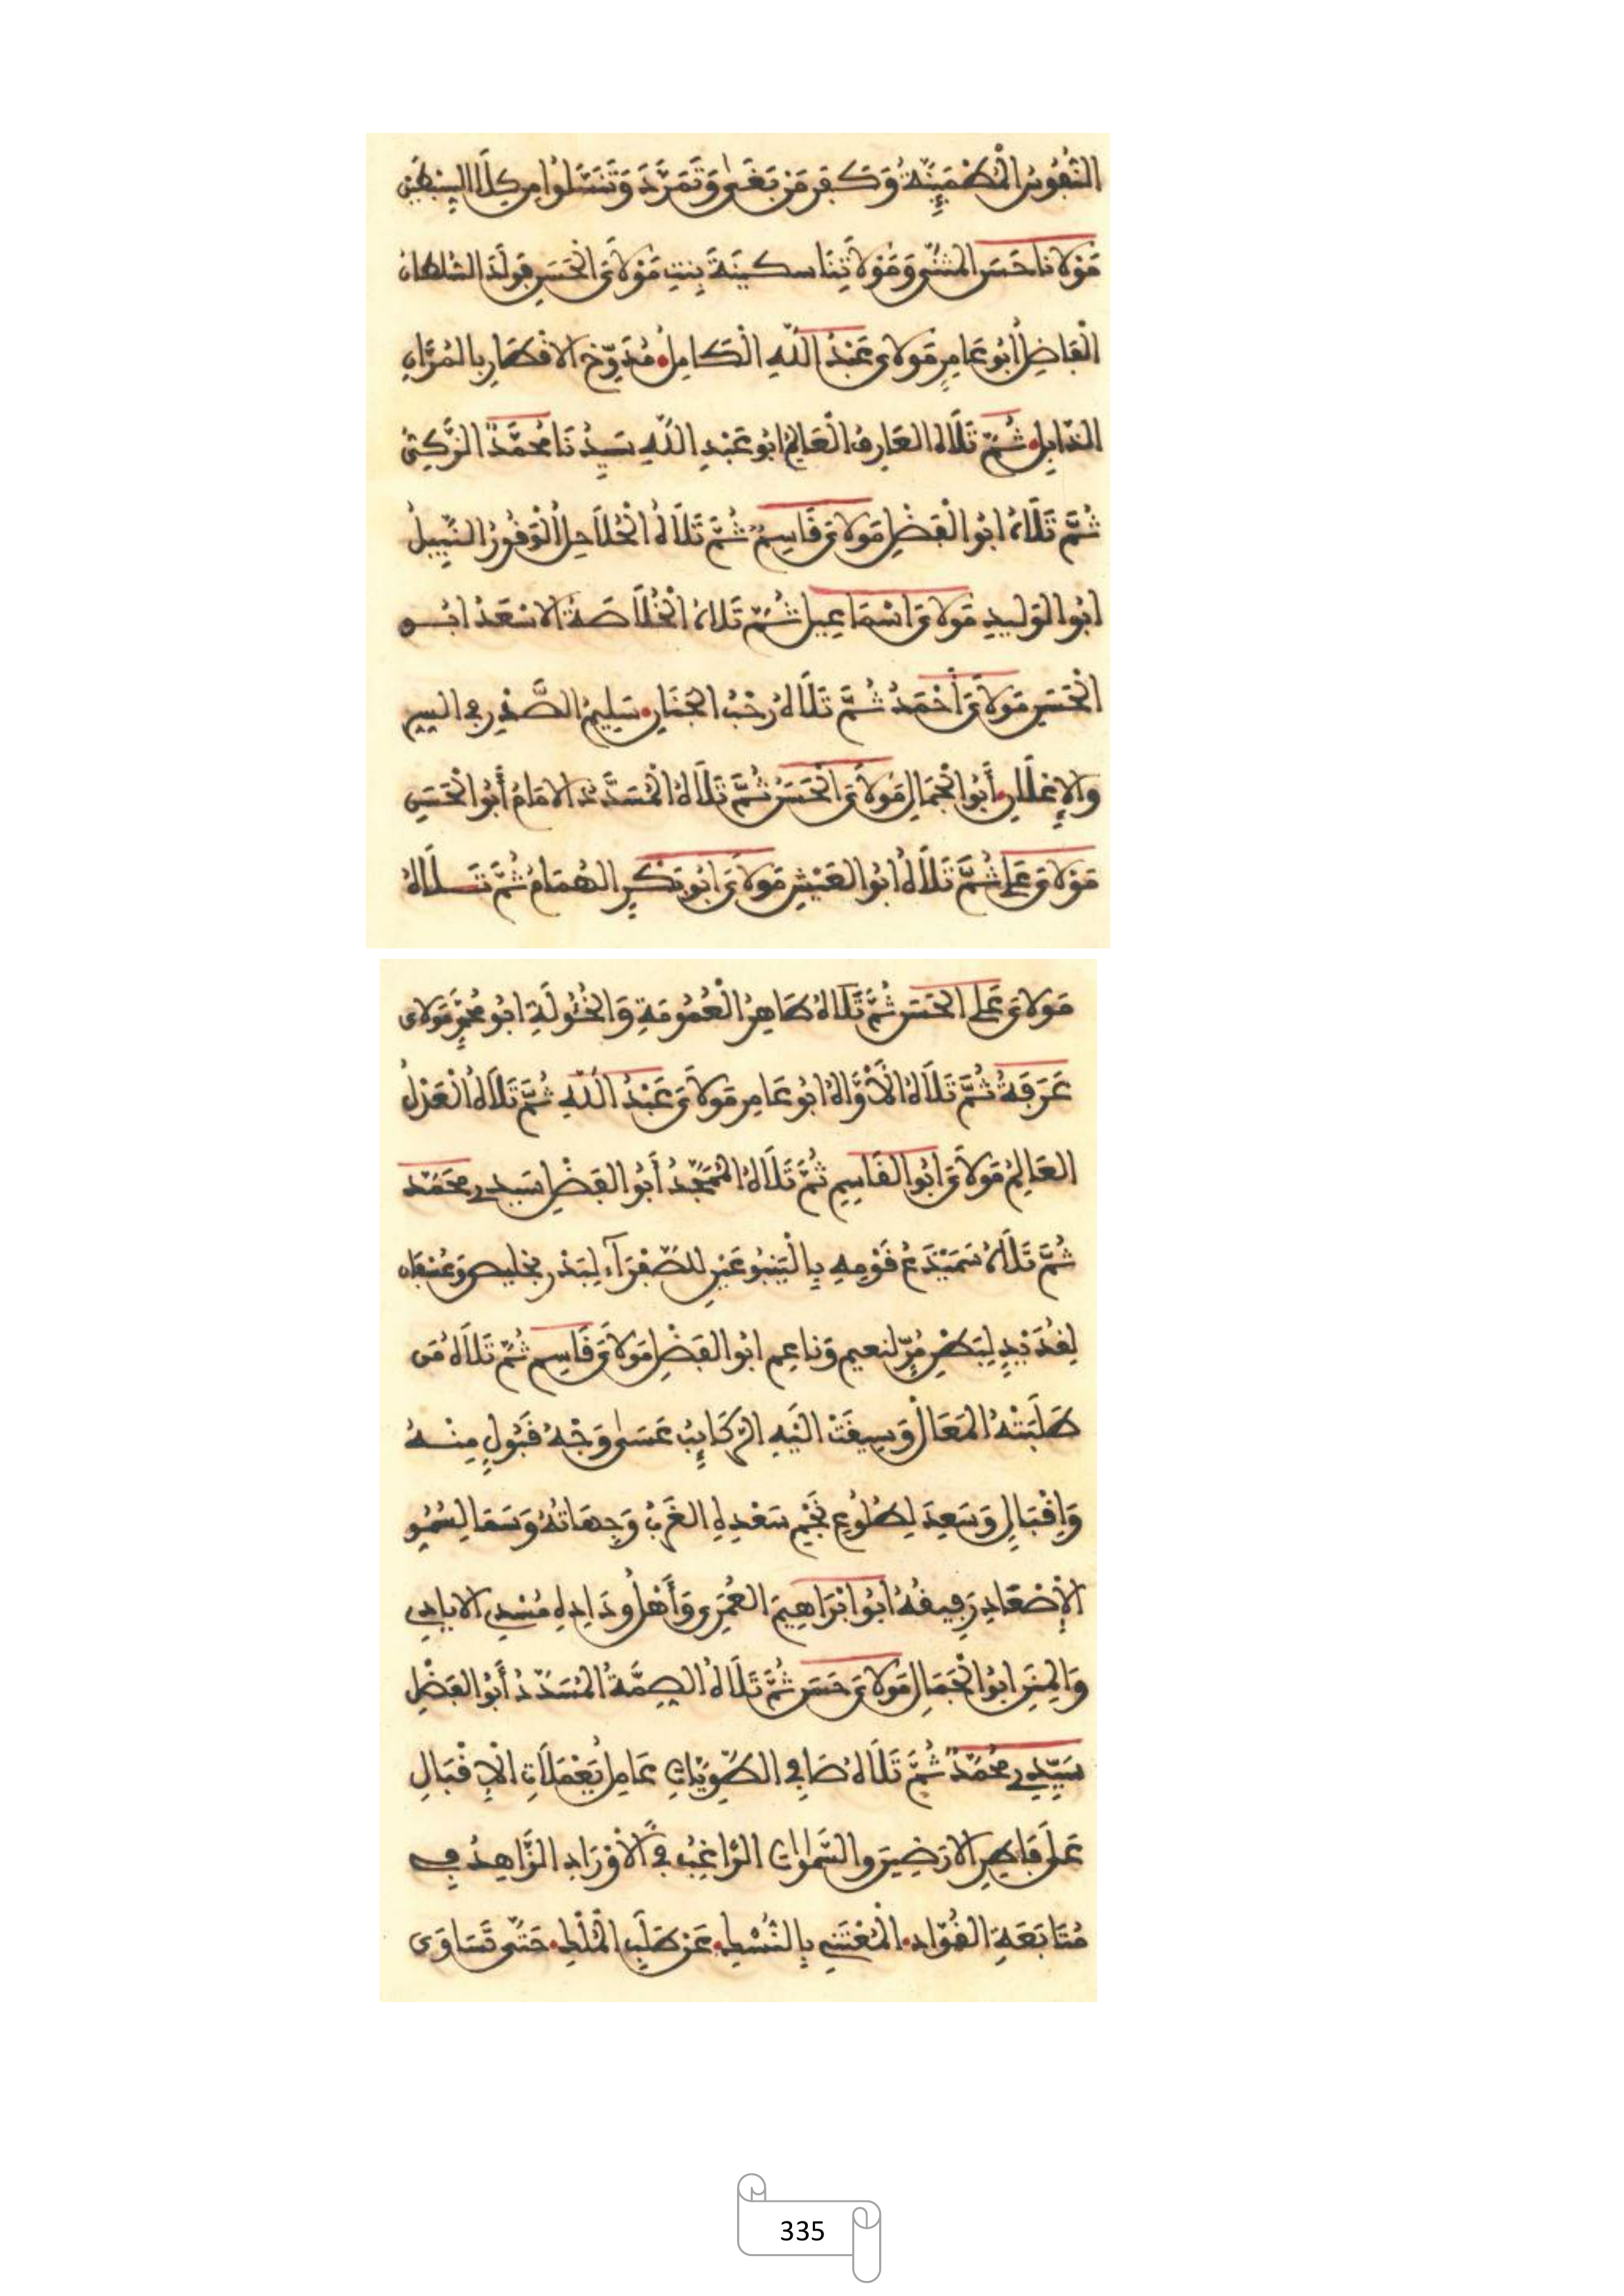 النفوس المطمئنة وكهر من بغى وتمرد وتنسلوا من كلا السبطين
مولانا حسن المثنى ومولاتنا سكينة بنت مولاي الحسن فولد السلطان
الفاضل أبو عامر مولاي عبد الله الكامل مدوخ الاقطار بالمران
الذابل ثم تلاه العارف العالم ابو عبد الله سيدنا محمد الزكي
ثم تلاه ابو الفضل مولاي قاسم ثم تلاه الحلاحل الوقور النبيل
ابو الوليد مولاي اسماعيل ثم تلاه الخلاصة الاسعد ابو
الحسن مولاي أحمد ثم تلاه رحب الجنان سليم الصدر في السر
والإعلان أبو الجمال مولاي الحسن ثم تلاه المسدد الامام أبو الحسن
مولاي علي ثم تلاه ابو العيش مولاي ابو بكر الهمام ثم تلاه
مولاي علي الحسن ثم تلاه طاهر العمومة والخئولة ابو محمد مولاي
عرفة ثم تلاه الأواه ابو عامر مولاي عبد الله ثم تلاه العدل
العالم مولاي ابو القاسم ثم تلاه الممجد أبو الفضل سيدي محمد
ثم تلاه سميدع قومه بالينبوعين للصفراء لبدر بخليص وعسفان
لقديد لبطن مر لنعيم وناعم ابو الفضل مولاي قاسم ثم تلاه من
طلبته المعالي وسيقت اليه الركائب عسى وجه قبول منه
وإقبال وسعد لطلوع نجم سعده الغرب وجهاته وسما لسمو
الإصعاد رفيقه ابو ابراهيم العمري وأهل وداده مسدي الايادي
والمنن ابو الجمال مولاي حسن ثم تلاه الصمة المسدد أبو الفضل
سيدي محمد ثم تلاه صافي الطويات عامل يعملات الإقبال
على فاطر الارضين والسموات الراغب في الأوراد الزاهد في
متابعة الفؤاد المغتني بالنسط عن طلب الملط حتى تساوى
335